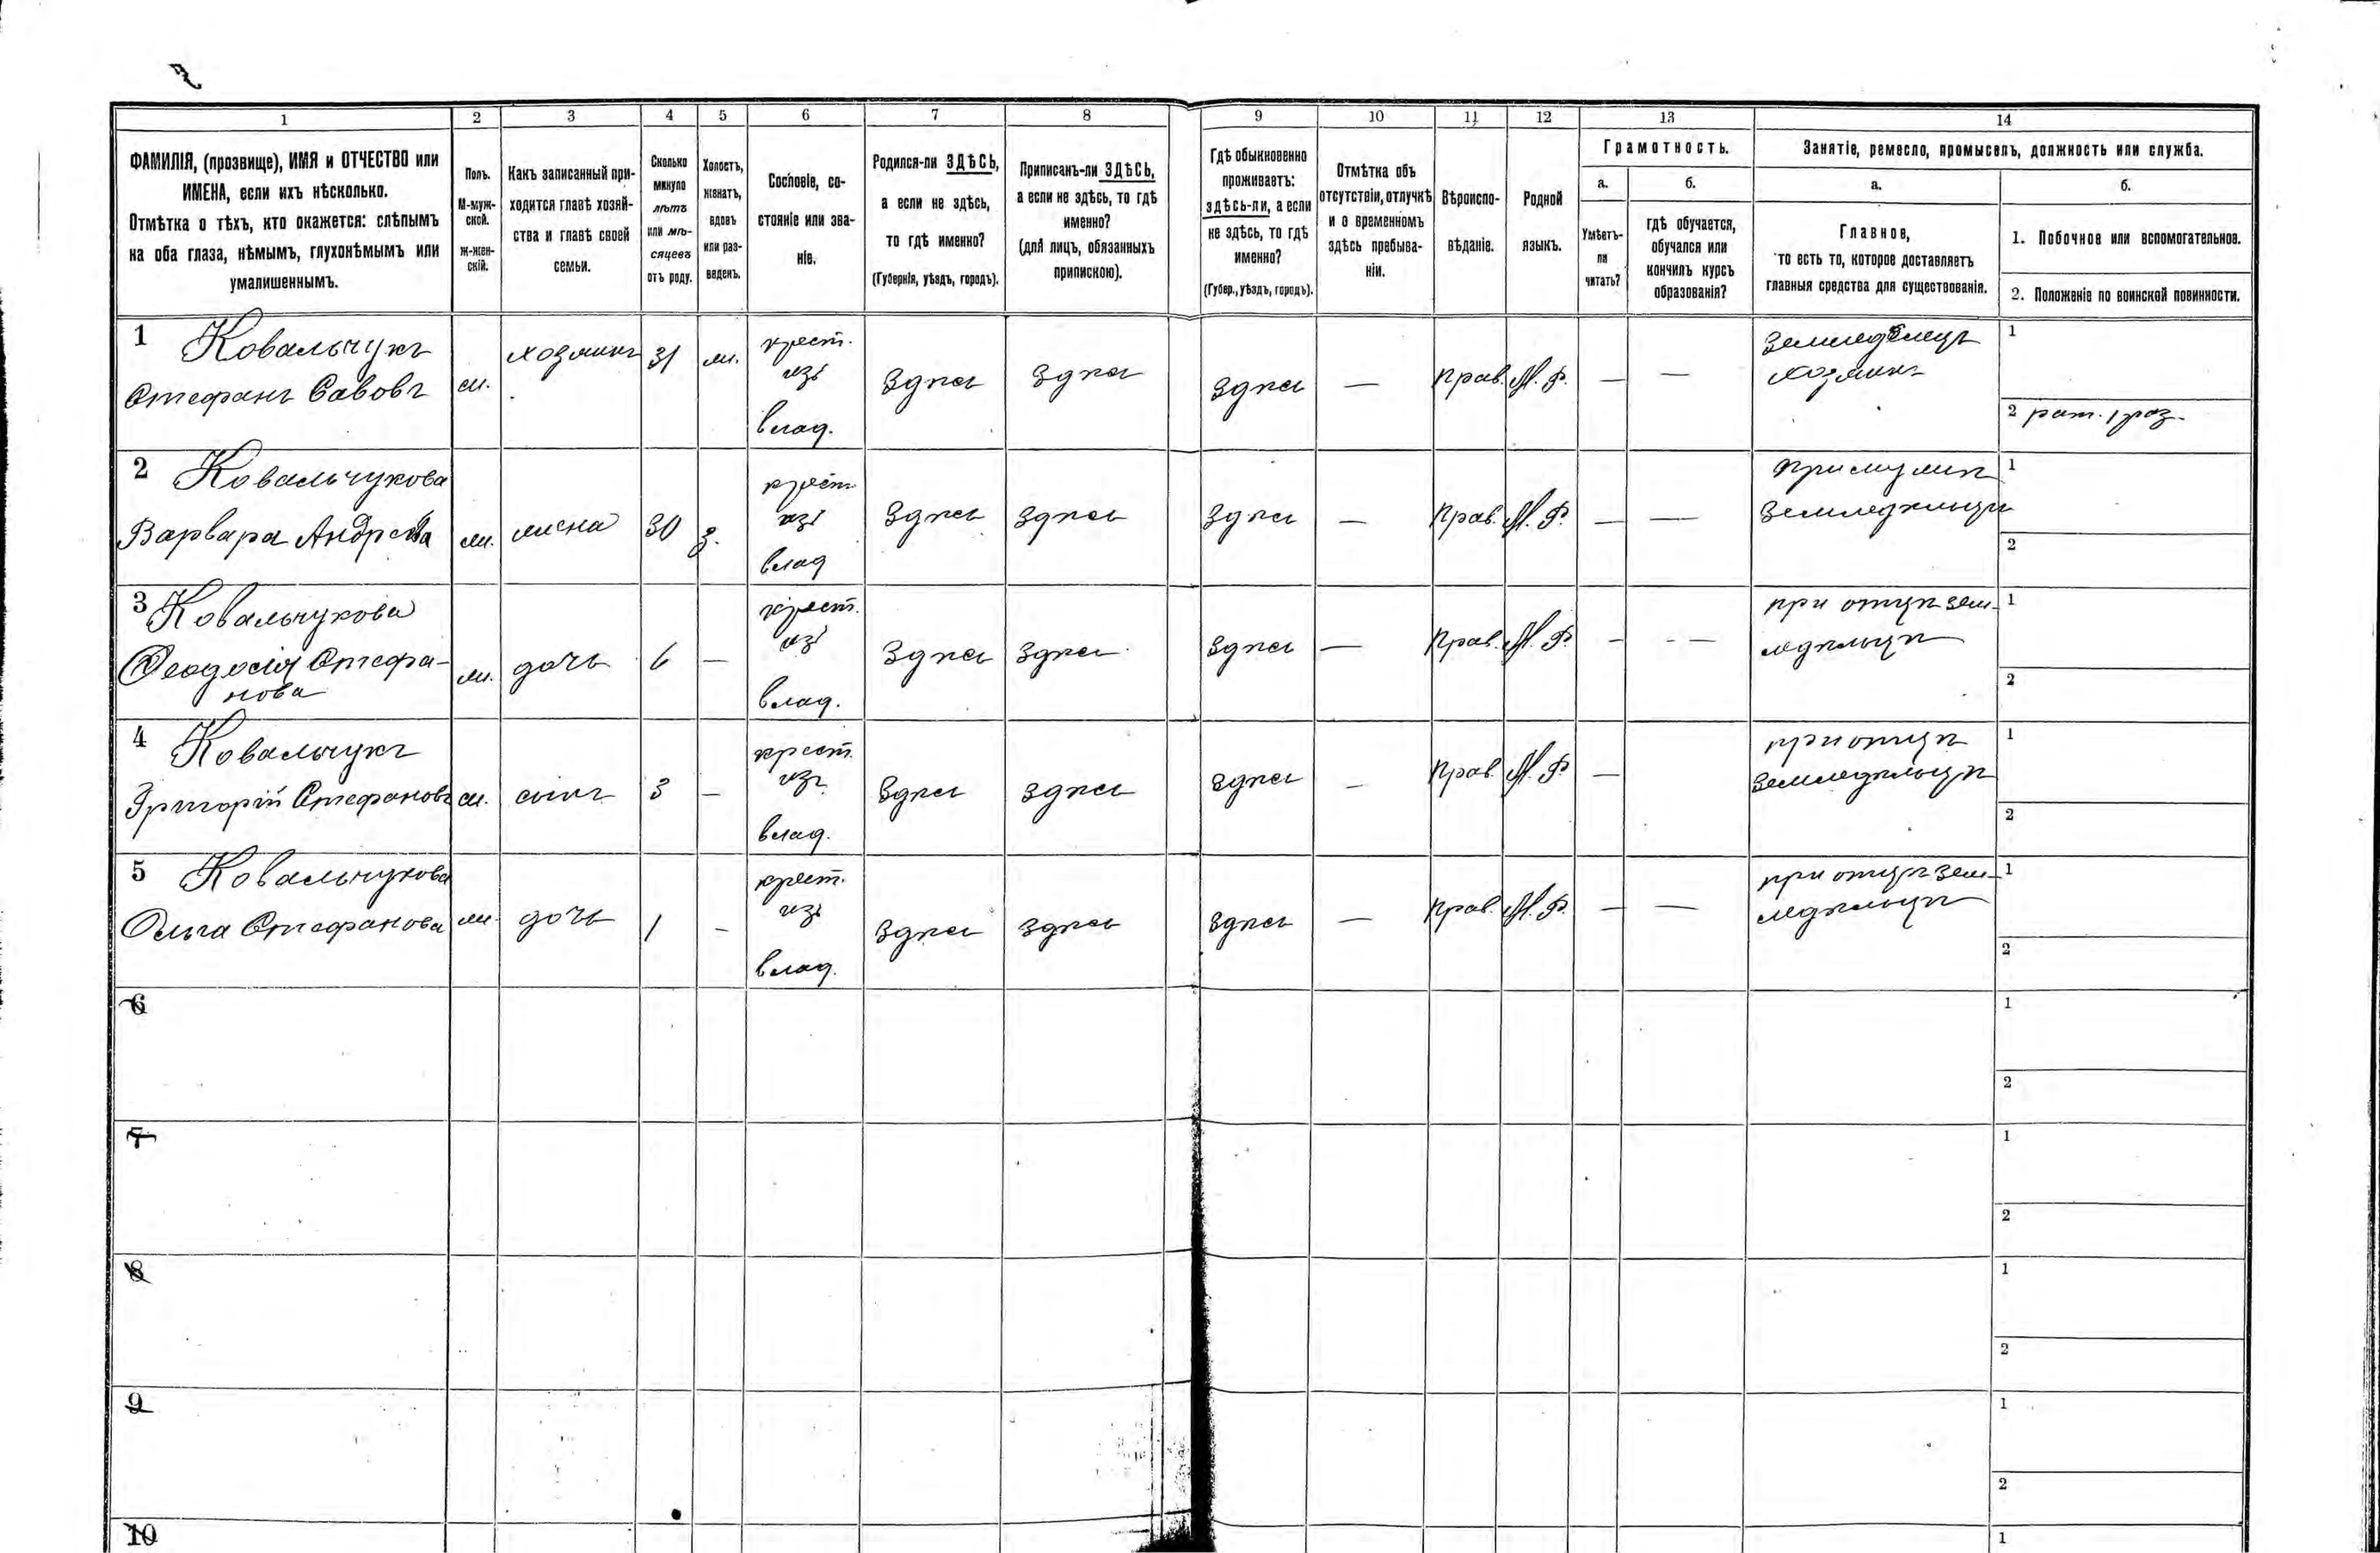 1
2
3
4
5
6
7
8
9
10
11
12
13
14
ФАМИЛІЯ, (прозвище), ИМЯ и ОТЧЕСТВО или
ИМЕНА, если ихъ нѣсколько.
Отмѣтка о тѣхъ, кто окажется: слѣпымъ
на оба глаза, нѣмымъ, глухонѣмымъ или
умалишеннымъ.
Полъ.
М-муж-
ской.
Ж-жен-
скій.
Какъ записанный при-
ходится главѣ хозяй-
ства и главѣ своей
семьи.
Сколько
минуло
лѣтъ
или мѣ-
сяцевъ
отъ роду.
Холостъ,
женатъ,
вдовъ
или раз-
веденъ.
Сословіе, со-
стояніе или зва-
ніе.
Родился-ли ЗДѢСЬ,
а если не здѣсь,
то гдѣ именно?
(Губернія, уѣздъ, городъ).
Приписанъ-ли ЗДѢСЬ,
а если не здѣсь, то гдѣ
именно?
(для лицъ, обязанныхъ
припискою).
Гдѣ обыкновенно
проживаетъ:
здѣсь-ли, а если
не здѣсь, то гдѣ
именно?
(Губер., уѣздъ, городъ).
Отмѣтка объ
отсутствіи, отлучкѣ
и о временномъ
здѣсь пребыва-
ніи.
Вѣроиспо-
вѣданіе.
Родной
языкъ.
Грамотность.
а.
Умѣетъ-
ли
читать?
б.
гдѣ обучается,
обучался или
кончилъ курсъ
образованія?
Занятіе, ремесло, промыселъ, должность или служба.
а.
Главное,
то есть то, которое доставляетъ
главныя средства для существованія.
б.
1. Побочное или вспомогательное.
2. Положеніе по воинской повинности.
1 Ковальчукъ
Стефанъ Савовъ
м.
хозяинъ
31
ж.
крест.
изъ
влад.
Здѣсь
Здѣсь
Здѣсь
—
Прав.
М. Р.
—
—
Земледѣлецъ
хозяинъ
1
2 рат. 1 раз.
2 Ковальчукова
Варвара Андреева
ж.
жена
30
з.
крест
изъ
влад
Здѣсь
Здѣсь
Здѣсь
—
Прав.
М. Р.
—
—
При мужѣ
Земледѣльцѣ
1
2
3 Ковальчукова
Ѳеодосія Стефа-
нова
ж.
дочь
6
—
крест.
изъ
влад.
Здѣсь
Здѣсь
Здѣсь
—
Прав.
М. Р.
—
- —
при отцѣ зем-
ледѣльцѣ
1
2
4 Ковальчукъ
Григорій Стефановъ
м.
сынъ
3
—
крест.
изъ
влад.
Здѣсь
Здѣсь
Здѣсь
—
Прав.
М. Р.
—
при отцѣ
Земледѣльцѣ
1
2
5 Ковальчукова
Ольга Стефанова
ж.
дочь
1
-
крест.
изъ
влад.
Здѣсь
Здѣсь
Здѣсь
—
Прав.
М. Р.
—
—
при отцѣ зем-
ледѣльцѣ
1
2
6
1
2
7
1
2
8
1
2
9
1
2
10
1